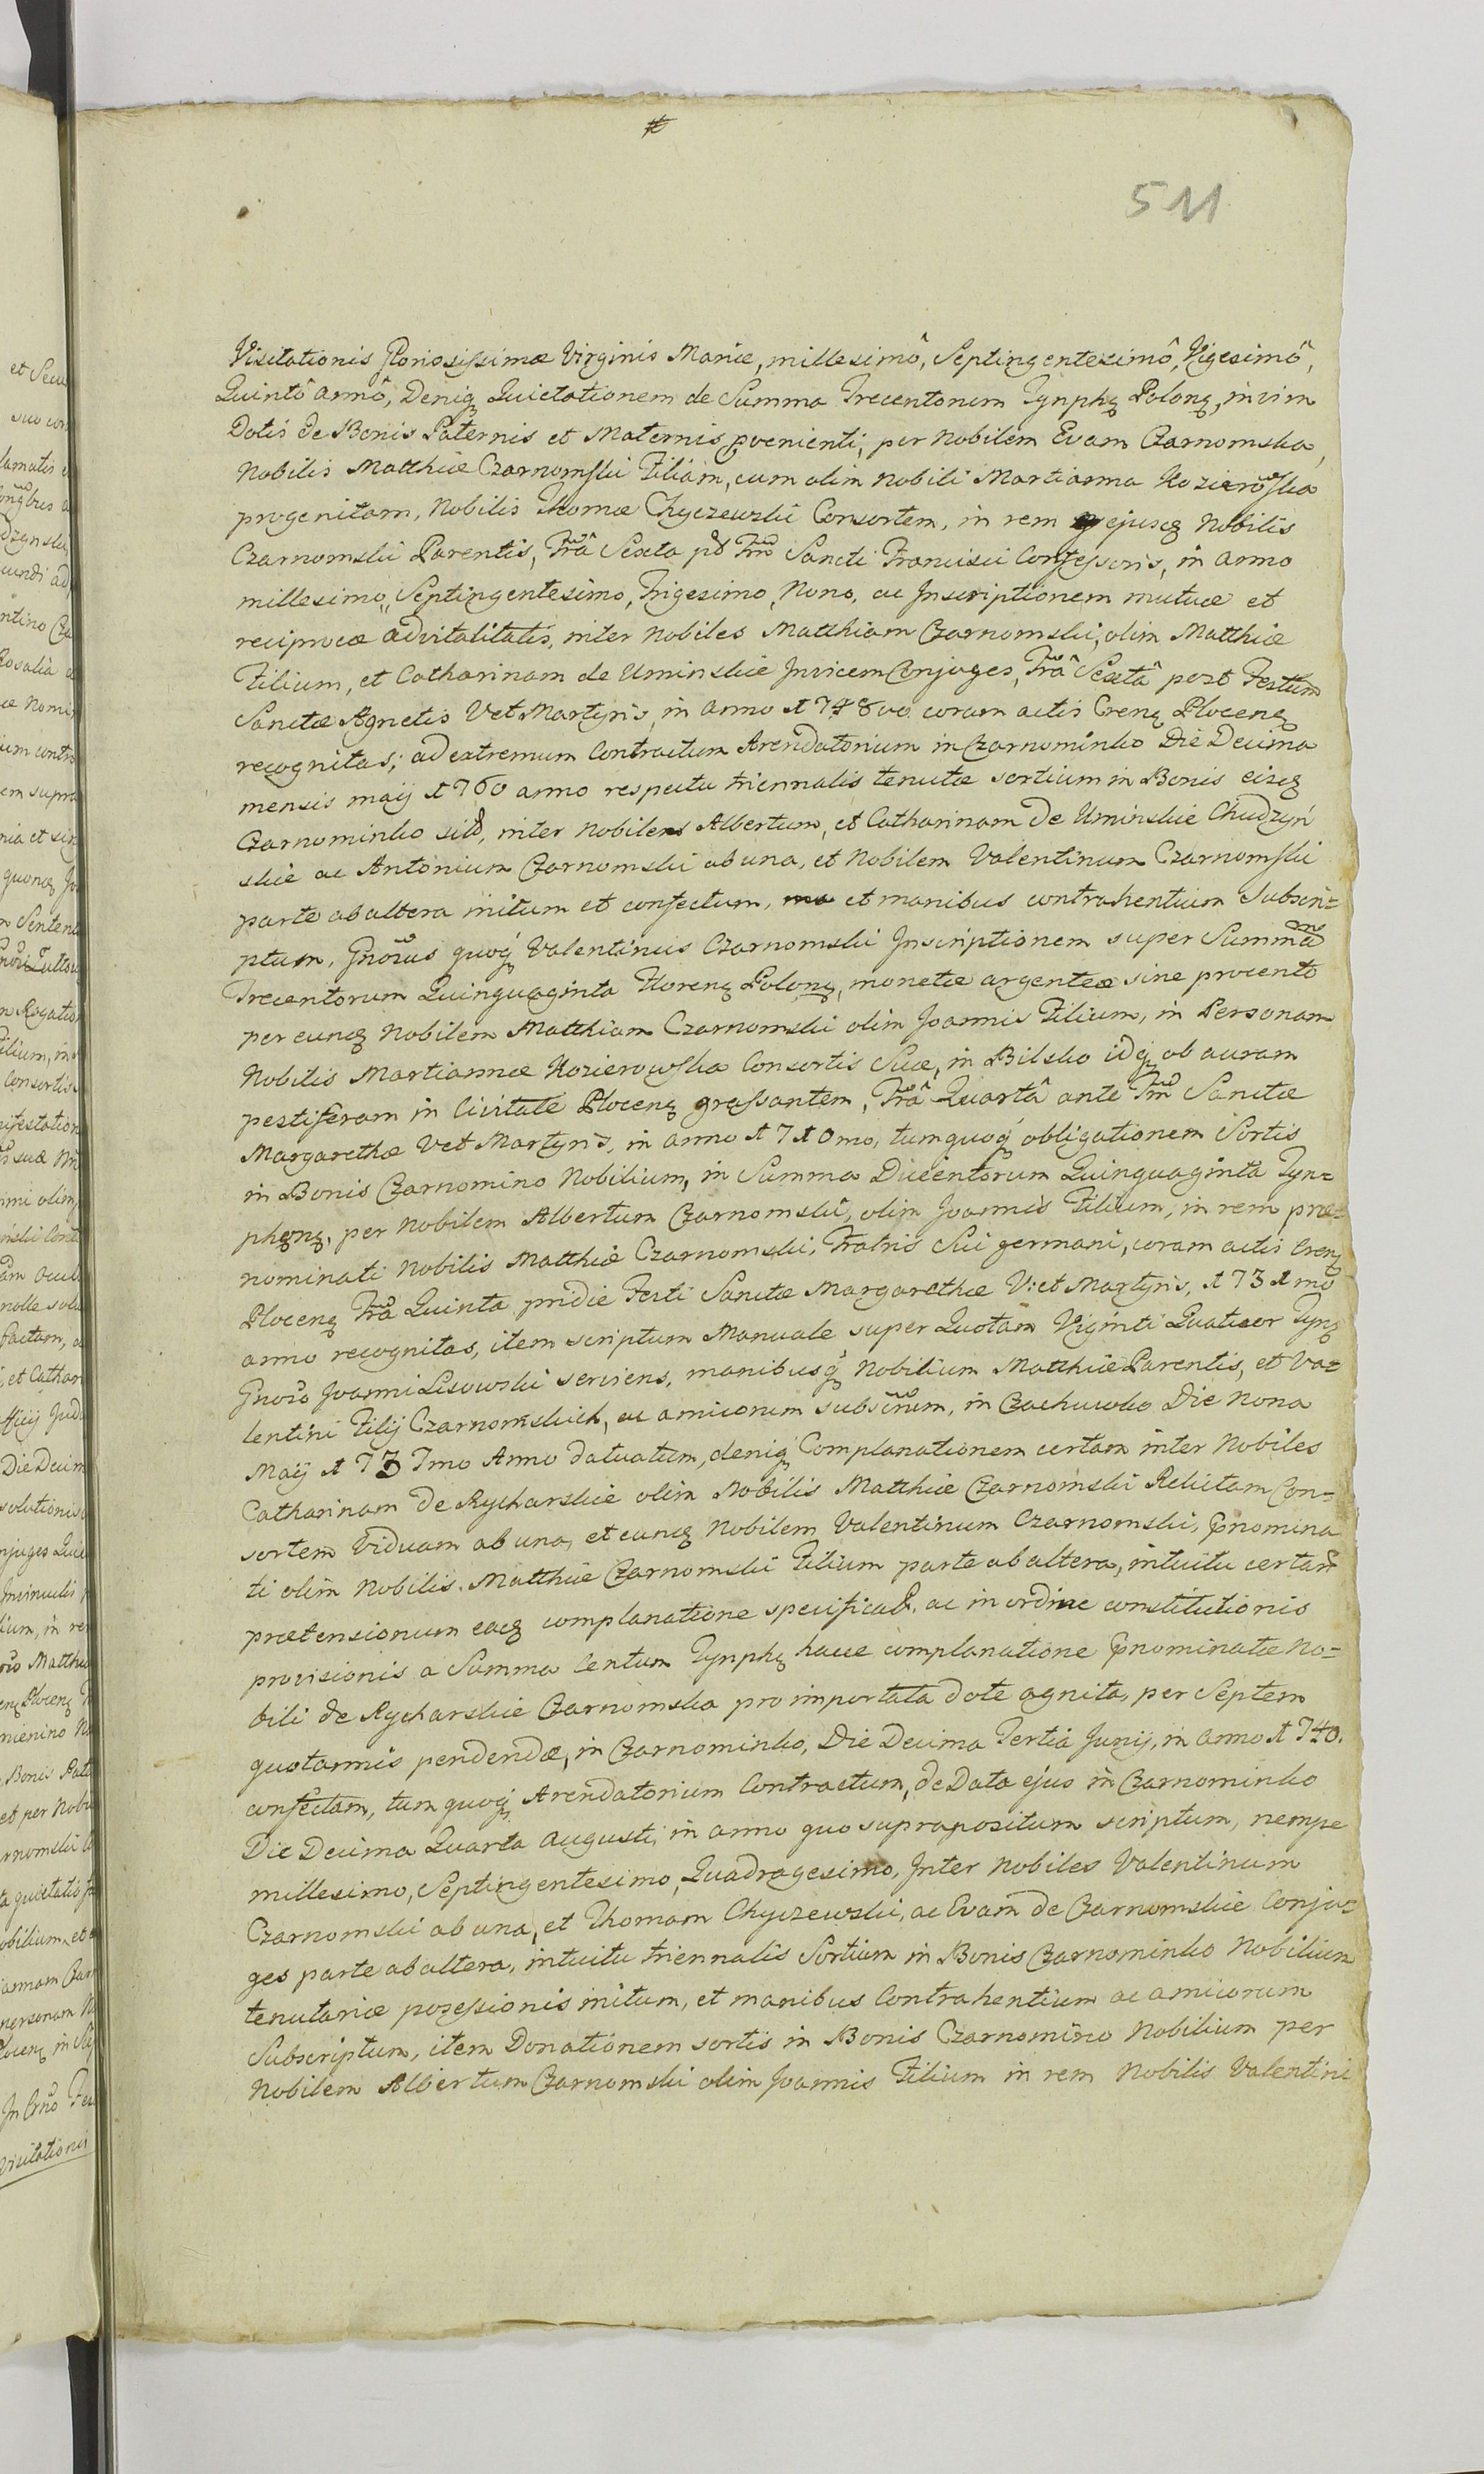 511
Visitationis Gloriosissimæ Virginis Mariæ, millesimô, Septingentesimô, Vigesimô,
Quintô annô, Deniqꝫ Quietationem de Summa Trecentorum Tynphꝫ Polonꝫ, in vim
Dotis de Bonis Paternis et Maternis pvenienti, per Nobilem Evam Czarnomska,
Nobilis Matthiæ Czarnomski Filiam, cum olim Nobili Martianna Kozierowska
progenitam, Nobilis Thomæ Chyczewski Consortem, in rem ejusqꝫ Nobilis
Czarnomski Parentis, Friâ Sexta pt Ftm Sancti Francisci Confessoris, in Anno
millesimo, Septingentesimo, Trigesimo, Nono, ac Inscriptionem mutuæ et
reciprocæ advitalitatis, inter Nobiles Matthiam Czarnomski, olim Matthiæ
Filium, et Catharinam de Uminskie Invicem Conjuges, Friâ Sextâ post Festum
Sanctæ Agnetis V et Martyris, in Anno 1748vo coram actis Crenꝫ Plocenꝫ
recognitas; ad extremum Contractum Arendatorium in Czarnominko Die Decima
mensis maij 1760 anno respectu triennalis tenutæ sortium in Bonis eisqꝫ
Czarnominko sit, inter Nobiles Albertum, et Catharinam de Uminskie Chudzyń
skie ac Antonium Czarnomski ab una, et Nobilem Valentinum Czarnomski
parte ab altera initum et confectum, et manibus contrahentium Subscri=
ptum, Gnosus quoqꝫ Valentinus Czarnomski Inscriptionem super Summa
Trecentorum Quinquaginta Florenꝫ Polonꝫ, monetæ argenteæ sine procento
per eunqꝫ Nobilem Matthiam Czarnomski olim Joannis Filium, in Personam
Nobilis Martiannæ Kozierowska Consortis Suæ, in Bilsko idqꝫ ob auram
pestiferam in Civitate Plocenꝫ grassantem, Friâ Quartâ ante Ftm Sanctæ
Margarethæ V et Martyris, in anno 1710mo, tum quoqꝫ obligationem Sortis
in Bonis Czarnomino Nobilium, in Summa Ducentorum Quinquaginta Tyn=
phonꝫ, per Nobilem Albertum Czarnomski, olim Joannis Filium, in rem præ=
nominati Nobilis Matthiæ Czarnomski, Fratris Sui germani, coram actis Crenꝫ
Plocenꝫ Fria Quinta pridie Festi Sanctæ Margarethæ V: et Martyris, 1731mo
anno recognitas, item scriptum Manuale super Quotam Viginti Quatuor Tynꝫ
Gnoso Joanni Lisowski serviens, manibusqꝫ Nobilium Matthiæ Parentis, et Va=
lentini Filij Czarnomskich, ac amicorum subscrum, in Czachowko Die Nona
Maij 1737mo Anno datuatum, deniqꝫ Complanationem certam inter Nobiles
Catharinam de Rycharskie olim Nobilis Matthiæ Czarnomski Relictam Con=
sortem Viduam ab una, et eunqꝫ Nobilem Valentinum Czarnomski, pnomina
ti olim Nobilis Matthiæ Czarnomski Filium parte ab altera, intuitu certar
prætensionum eaqꝫ complanatione specificat, ac in ordine constitutionis
provisionis a Summa Centum Tynphꝫ hacce complanatione pnominatæ No=
bili de Rycharskie Czarnomska pro importata dote agnita, per Septem
quotannis pendendæ, in Czarnominko, Die Decima Tertia Junij, in anno 1740.
confectam, tum quoqꝫ Arendatorium Contractum, de Data ejus in Czarnominko
Die Decima Quarta Augusti, in anno quo suprapositum scriptum, nempe
millesimo, Septingentesimo, Quadragesimo, Inter Nobiles Valentinum
Czarnomski ab una, et Thomam Chyczewski, ac Evam de Czarnomskie Conju=
ges parte ab altera, intuitu triennalis Sortium in Bonis Czarnominko Nobilium
tenutariæ possessionis initum, et manibus Contrahentium ac amicorum
Subscriptum, item Donationem sortis in Bonis Czarnomino Nobilium per
Nobilem Albertum Czarnomski olim Joannis Filium in rem Nobilis Valentini